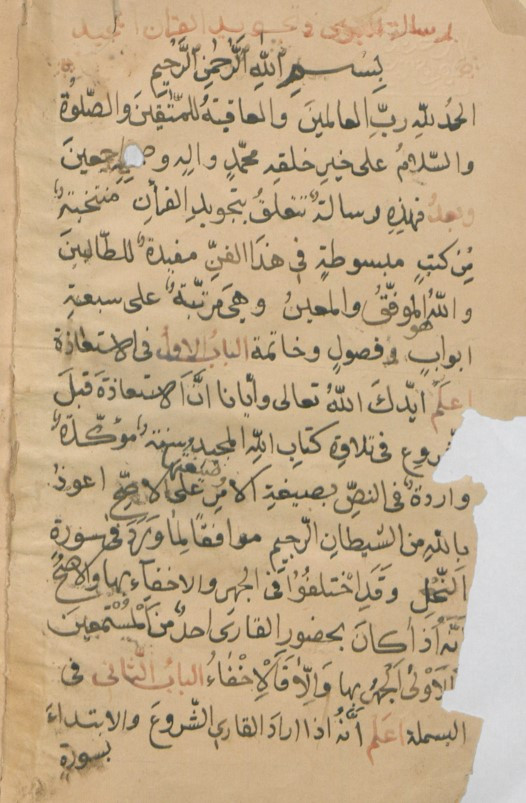 رسالة البركوى فى تجويد القران المجيد
بسم الله الرحمن الرحيم
الحمد لله رب العالمين والعاقبة للمتقين والصلوة
والسلام على خير خلقه محمد واله وصحبه اجمعين
وبعد فهذه رسالة تتعلق بتجويد القرآن منتخبة
من كتب مبسوطة فى هذا الفن مفيدة للطالبين
والله هو الموفق والمعين وهى مرتبة على سبعة
ابواب وفصول وخاتمة الباب الاول فى الاستعاذة
اعلم ايدك الله تعالى وايانا ان الاستعاذة قبل
الشروع فى تلاوة كتاب الله المجيد سنة مؤكدة
واردة فى النص بصيغة الامر صيغتها على الاصح اعوذ
بالله من الشيطان الرجيم موافقا لما ورد فى سورة
النحل وقد اختلفوا فى الجهر والاخفاء بها والاصح
انه اذا كان بحضور القارى احد من المستمعين
الاولى الجهر بها والا فالاخفاء الباب الثانى فى
البسملة اعلم انه اذا اراد القارى الشروع والابتداء
بسورة